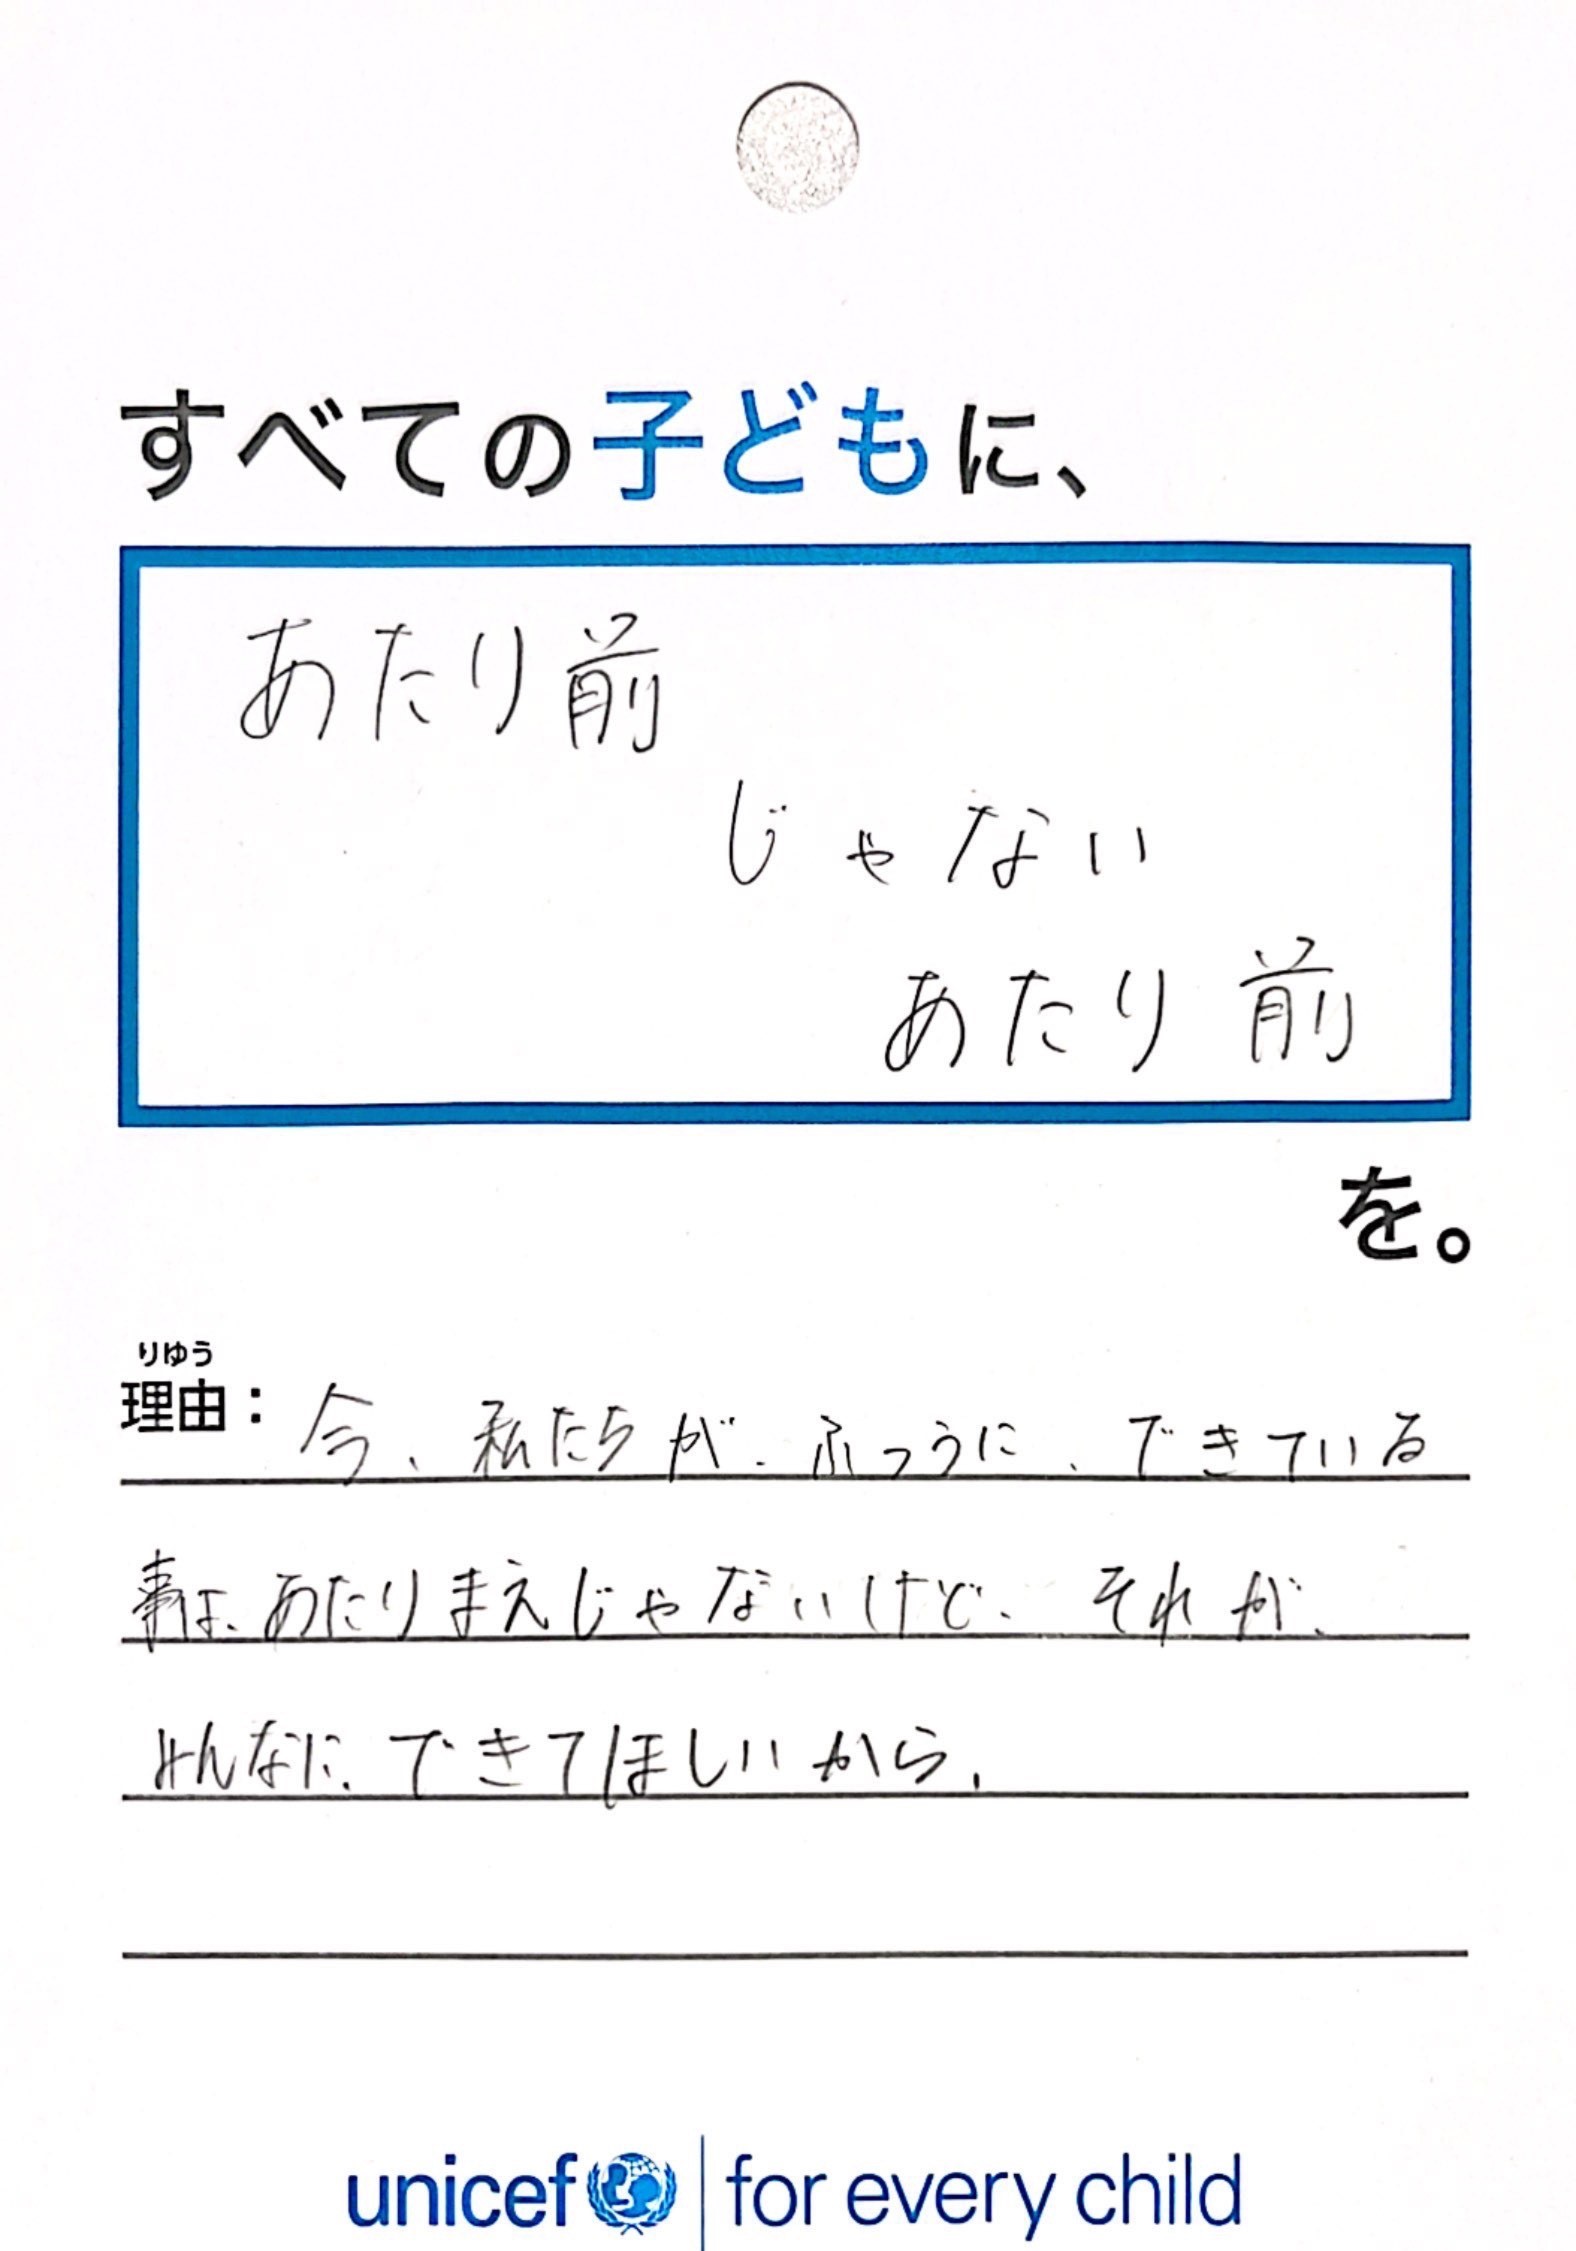 すべての子どもに、
あたり前
じゃない
あたり前
を。
りゆう
理由：今、私たちが、ふつうに、できている
事は、あたりまえじゃないけど、それが、
みんなに、できてほしいから、
unicef for every child